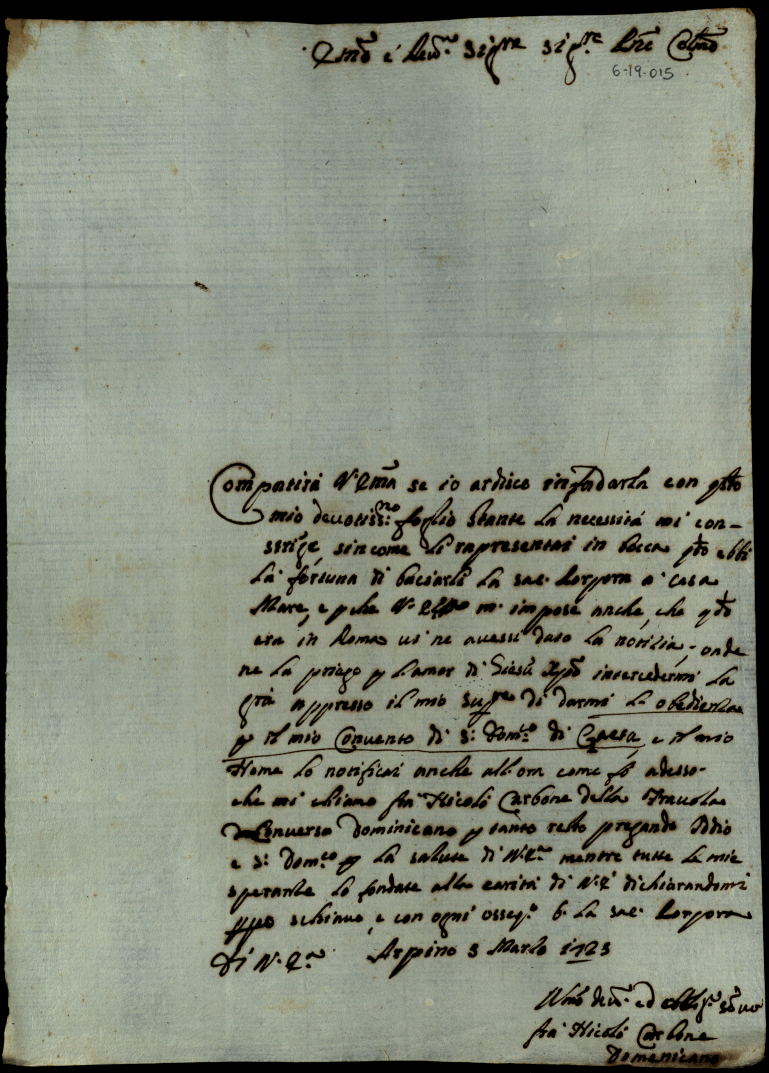 Emō è Revm̄o Sigre Sigre Pnē Colmō
6-19-015
Compatirà V. Emā se io ardisco infadarla con qsto
mio devotissmo foglio stante la necessità mi con-
strige, sincome li rapresentai in bocca qdo ebbi
la fortuna di baciarli la sac. Porpora a casa
Mare, e pche V. Em m. impose anche che qdo
era in Roma vi ne avessi dato la notitia, onde
ne la priego p l'amor di Giesù Xpō intercedermi la
grā appresso il mio Supre di darmi la obedienza
p il mio Convento di S. Domco di Gaeta, e il mio
Nome lo notificai anche allora come fò adesso
che mi chiamo fra Nicolò Carbone della Fravola
Converso Domenicano p tanto resto pregando Iddio
e S. Domco p la salute di V. Ema mentre tutte le mie
speranze lo fondate alla carità di V. E. dichiarandomi
schiavo, e con ogni osseqo b. la sac. Porpora
Di V. Ema Arpino 3 Marzo 1723
Umō devmo ed obligmo servo
fra Nicolò Carbone
Domenicano